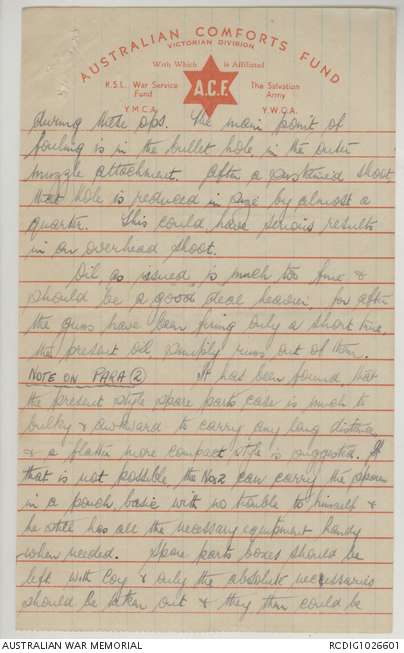 AUSTRALIAN COMFORTS FUND
VICTORIAN DIVISION
With Which is Affiliated
R.S.L. War Service Fund
A.C.F.
The Salvation Army
Y.M.C.A.
Y.W.C.A.
during these ops. The main point of
fouling is in the bullet hole in the outer
muzzle attachment. After a sustained shoot
that hole is reduced in size by almost a
quarter. This could have serious results
in an overhead shoot.
Oil as issued is much too fine &
should be a good deal heavier for after
the guns have been firing only a short time
the present oil simply runs out of them.
NOTE ON PARA (2) It has been found that
the present style spare parts case is much to
bulky & awkward to carry any long distance
& a flatter more compact style is suggested. If
that is not possible the No2 can carry the spares
in a pouch basic with no trouble to himself &
he still has all the necessary equipment handy
when needed. Spare parts boxes should be
left with Coy & only the absolute necessaries
should be taken out & they then could be
AUSTRALIAN WAR MEMORIAL
RCDIG1026601